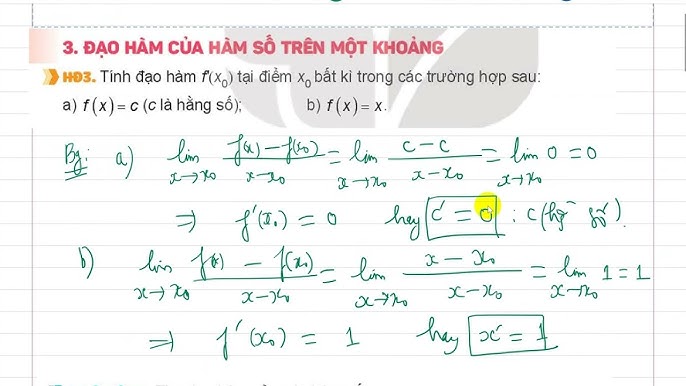 3. ĐẠO HÀM CỦA HÀM SỐ TRÊN MỘT KHOẢNG
HĐ3. Tính đạo hàm f'(x₀) tại điểm x₀ bất kì trong các trường hợp sau:
a) f(x) = c (c là hằng số); b) f(x) = x.
Bg: a) lim x→x₀ (f(x) - f(x₀))/(x - x₀) = lim x→x₀ (c - c)/(x - x₀) = lim x→x₀ 0 = 0
⇒ f'(x₀) = 0 hay c' = 0 : c (hg số).
b) lim x→x₀ (f(x) - f(x₀))/(x - x₀) = lim x→x₀ (x - x₀)/(x - x₀) = lim x→x₀ 1 = 1
⇒ f'(x₀) = 1 hay x' = 1